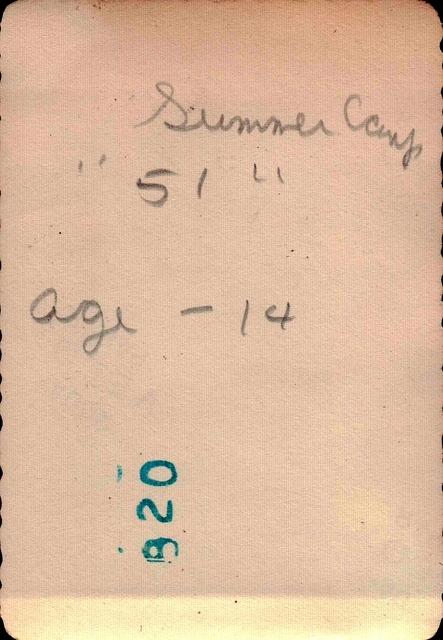 Summer Camp
" 51 "
age - 14
B20